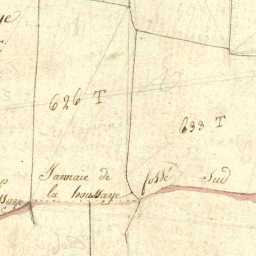 626 T
633 T
Jannaie de
la houssaye
fossé Sud